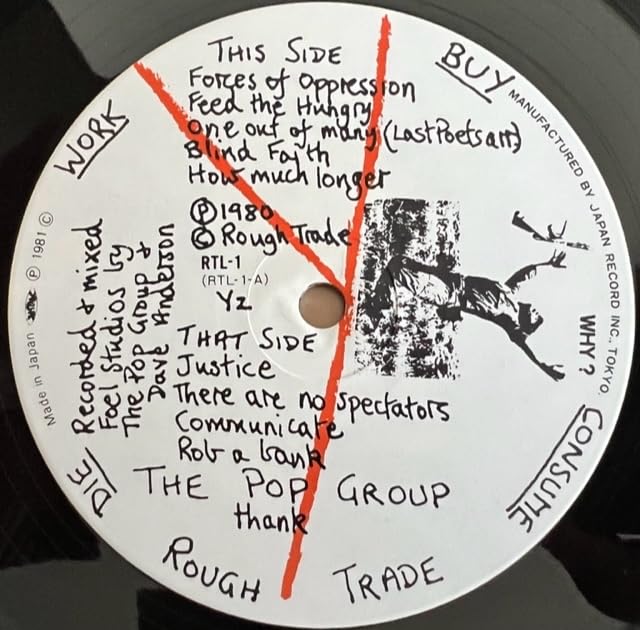 THIS SIDE
Forces of Oppression
Feed the Hungry
One out of many (Last Poets arr)
Blind Faith
How much longer
Ⓟ1980
© Rough Trade
RTL-1
(RTL-1-A)
Yz
THAT SIDE
Justice
There are no spectators
Communicate
Rob a bank
THE POP GROUP
thank
ROUGH TRADE
WORK
BUY
MANUFACTURED BY JAPAN RECORD INC., TOKYO.
WHY?
CONSUME
DIE
Recorded & mixed
Foel Studios by
The Pop Group &
Dave Anderson
Made in Japan
Ⓟ 1981 ©